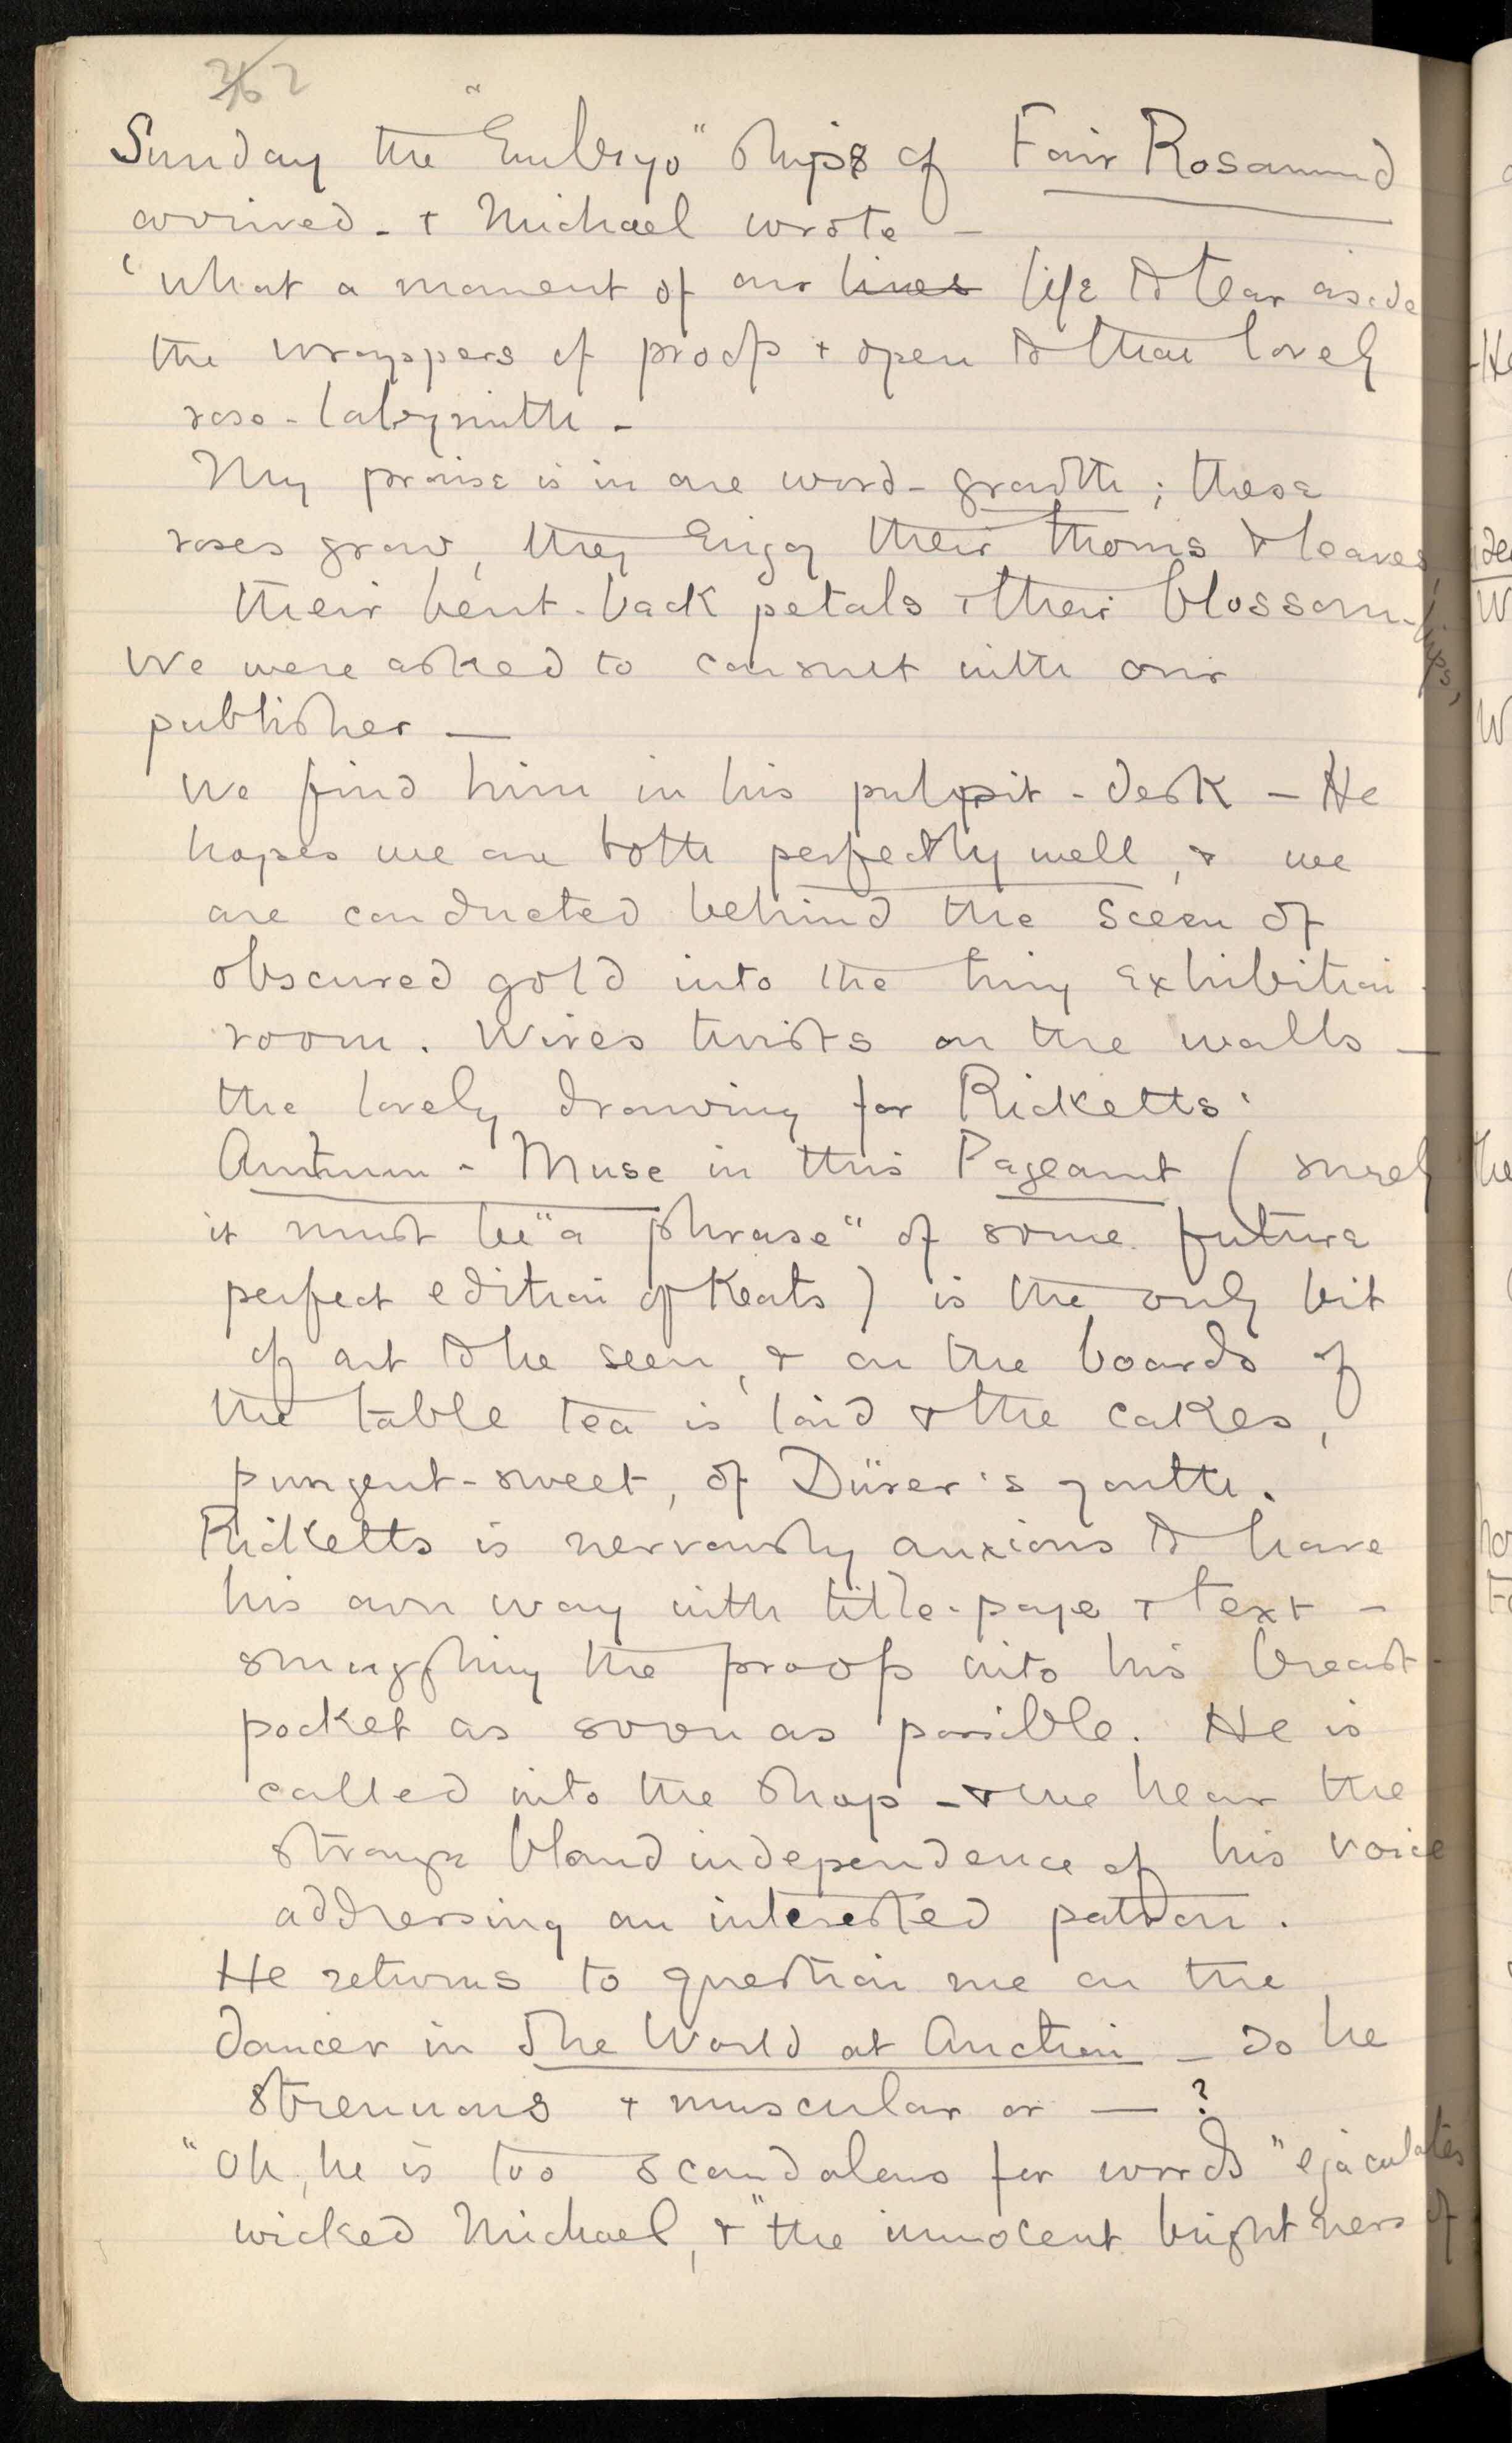 Sunday the "Embryo" ships of Fair Rosamund
arrived - & Michael wrote -
'What a moment of our lives life to tear aside
the wrappers of proofs & open to that lovely
rose-labyrinth -
My praise is in one word - growth; these
roses grow, they enjoy their thorns & leaves,
their bent-back petals & their blossom-hips,
We were asked to consult with our
publisher —
We find him in his pulpit-desk — He
hopes we are both perfectly well, & we
are conducted behind the sceen of
obscured gold into the tiny exhibition
room. Wires twists on the walls —
the lovely drawing for Ricketts'
Autumn-Muse in this Pageant (surely
it must be "a phrase" of some future
perfect edition of Keats) is the only bit
of art to be seen, & on the boards of
the table tea is laid & the cakes,
pungent-sweet, of Dürer's youth.
Ricketts is nervously anxious to have
his own way with title-page & text -
smuggling the proofs into his breast-
pocket as soon as possible. He is
called into the shop - & we hear the
strange bland independence of his voice
addressing an interested patron.
He returns to question me on the
dancer in The World at Auction — Is he
strenuous & muscular or — ?
"Oh, he is too scandalous for words" ejaculates
wicked Michael, & "the innocent brightness of